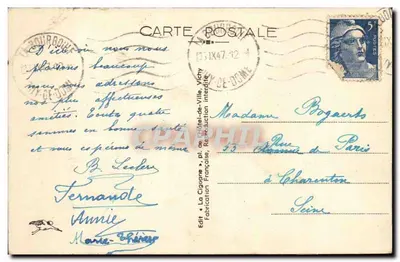 CARTE POSTALE
LA BOURBOULE
IX 47
PUY-DE-DOME
D'ici où nous nous
plaisons beaucoup
nous vous adressons
nos plus affectueuses
amitiés. Toutes quatre
sommes en bonne santé
et vous espérons de même
B. Leclerc
Fernande
Annie
Marie-Thérèse
Edit « La Cigogne », pl. de l'Hôtel-de-Ville, Vichy
Fabrication Française, Reproduction interdite
Madame Bogaerts
53 Rue de Paris
à Charenton
Seine